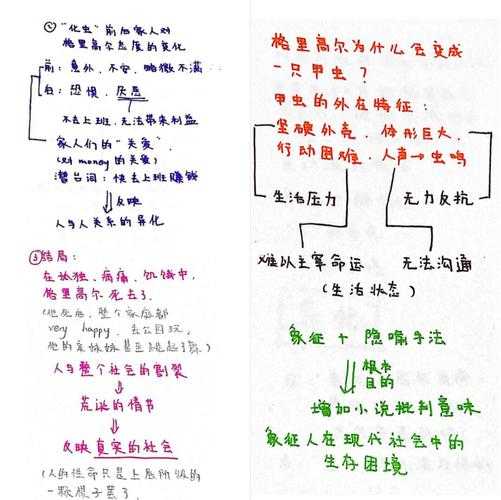 ② “化虫”前后家人对
格里高尔态度的变化
前：意外、不安、略微不满
后：恐惧、厌恶
不去上班，无法带来利益
家人们的“关爱”，
(对 money 的关爱)
潜台词：快去上班赚钱
反映
人与人关系的异化
③ 结局：
在孤独、病痛、饥饿中，
格里高尔死去了.
(他死后，整个家庭都
very happy，去公园玩，
他的亲妹妹甚至跳起了舞)
人与整个社会的割裂
荒诞的情节
反映真实的社会
(人的性命只是上层阶级的
一颗棋子罢了
格里高尔为什么会变成
一只甲虫？
甲虫的外在特征：
坚硬外壳、体形巨大、
行动困难、人声→虫鸣
生活压力 无力反抗
难以主宰命运 无法沟通
(生活状态)
象征 + 隐喻手法
根本
目的
增加小说批判意味
象征人在现代社会中的
生存困境